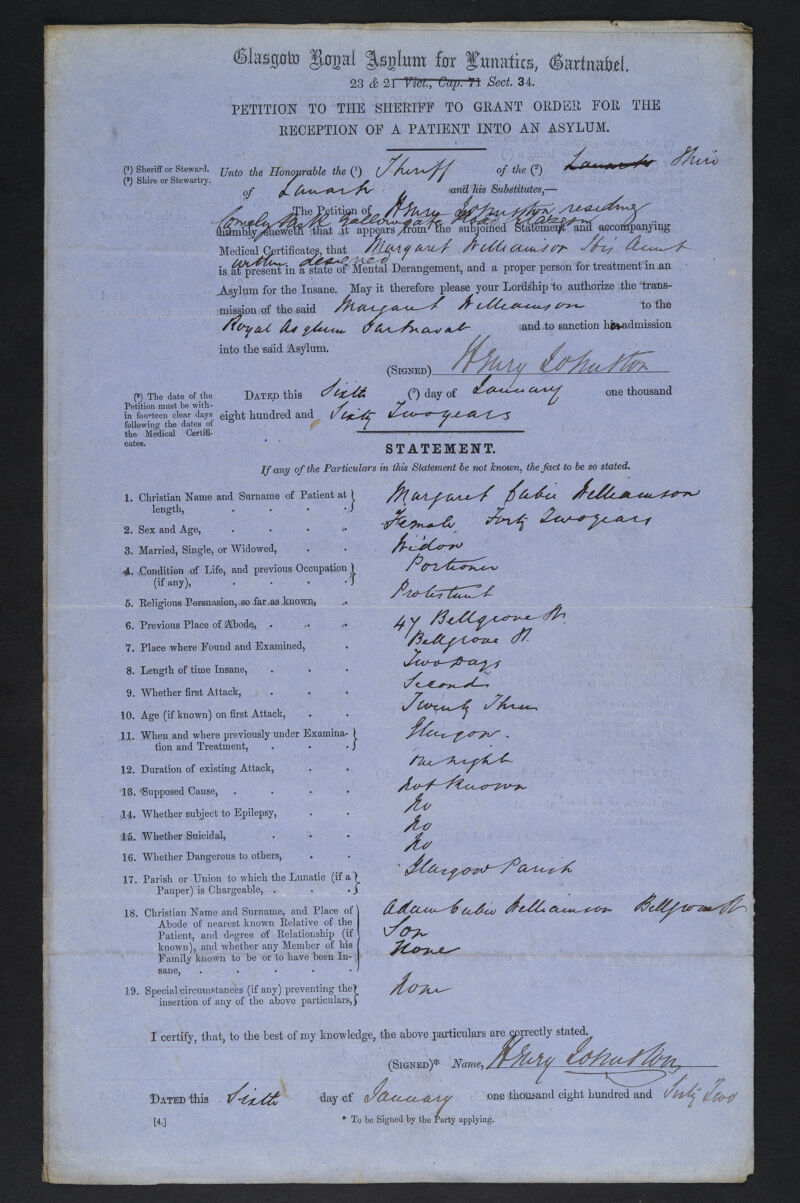 Glasgow Royal Asylum for Lunatics, Gartnabel.
23 & 21 Vict., Cap. 71 Sect. 34.
PETITION TO THE SHERIFF TO GRANT ORDER FOR THE
RECEPTION OF A PATIENT INTO AN ASYLUM.
(¹) Sheriff or Steward.
(²) Shire or Stewartry.
Unto the Honourable the (¹) Sheriff of the (²) Lanark Shire
of Lanark and his Substitutes,—
The Petition of Henry Johnston residing
Comely Park Gallowgate Road Glasgow
humbly sheweth that it appears from the subjoined Statement and accompanying
Medical Certificates, that Margaret Williamson His Aunt
within designed
is at present in a state of Mental Derangement, and a proper person for treatment in an
Asylum for the Insane. May it therefore please your Lordship to authorize the trans-
mission of the said Margaret Williamson to the
Royal Asylum Gartnaval and to sanction her admission
into the said Asylum.
(SIGNED) Henry Johnston
(³) The date of the
Petition must be with-
in fourteen clear days
following the dates of
the Medical Certifi-
cates.
DATED this Sixth (³) day of January one thousand
eight hundred and Sixty Two years
STATEMENT.
If any of the Particulars in this Statement be not known, the fact to be so stated.
1. Christian Name and Surname of Patient at
length, Margaret Cubie Williamson
2. Sex and Age, Female Forty Two years
3. Married, Single, or Widowed, Widow
4. Condition of Life, and previous Occupation
(if any), Portioner
5. Religious Persuasion, so far as known, Protestant
6. Previous Place of Abode, 47 Bellgrove St.
7. Place where Found and Examined, Bellgrove St.
8. Length of time Insane, Two Days
9. Whether first Attack, Second
10. Age (if known) on first Attack, Twenty Three
11. When and where previously under Examina-
tion and Treatment, Glasgow.
12. Duration of existing Attack, one night
13. Supposed Cause, Not Known
14. Whether subject to Epilepsy, No
15. Whether Suicidal, No
16. Whether Dangerous to others, No
17. Parish or Union to which the Lunatic (if a
Pauper) is Chargeable, Glasgow Parish
18. Christian Name and Surname, and Place of
Abode of nearest known Relative of the
Patient, and degree of Relationship (if
known), and whether any Member of his
Family known to be or to have been In-
sane,
Adam Cubie Williamson Bellgrove St
Son
None
19. Special circumstances (if any) preventing the
insertion of any of the above particulars, None
I certify, that, to the best of my knowledge, the above particulars are correctly stated.
(SIGNED)* Name, Henry Johnston
DATED this Sixth day of January one thousand eight hundred and Sixty Two
[4.]
* To be Signed by the Party applying.